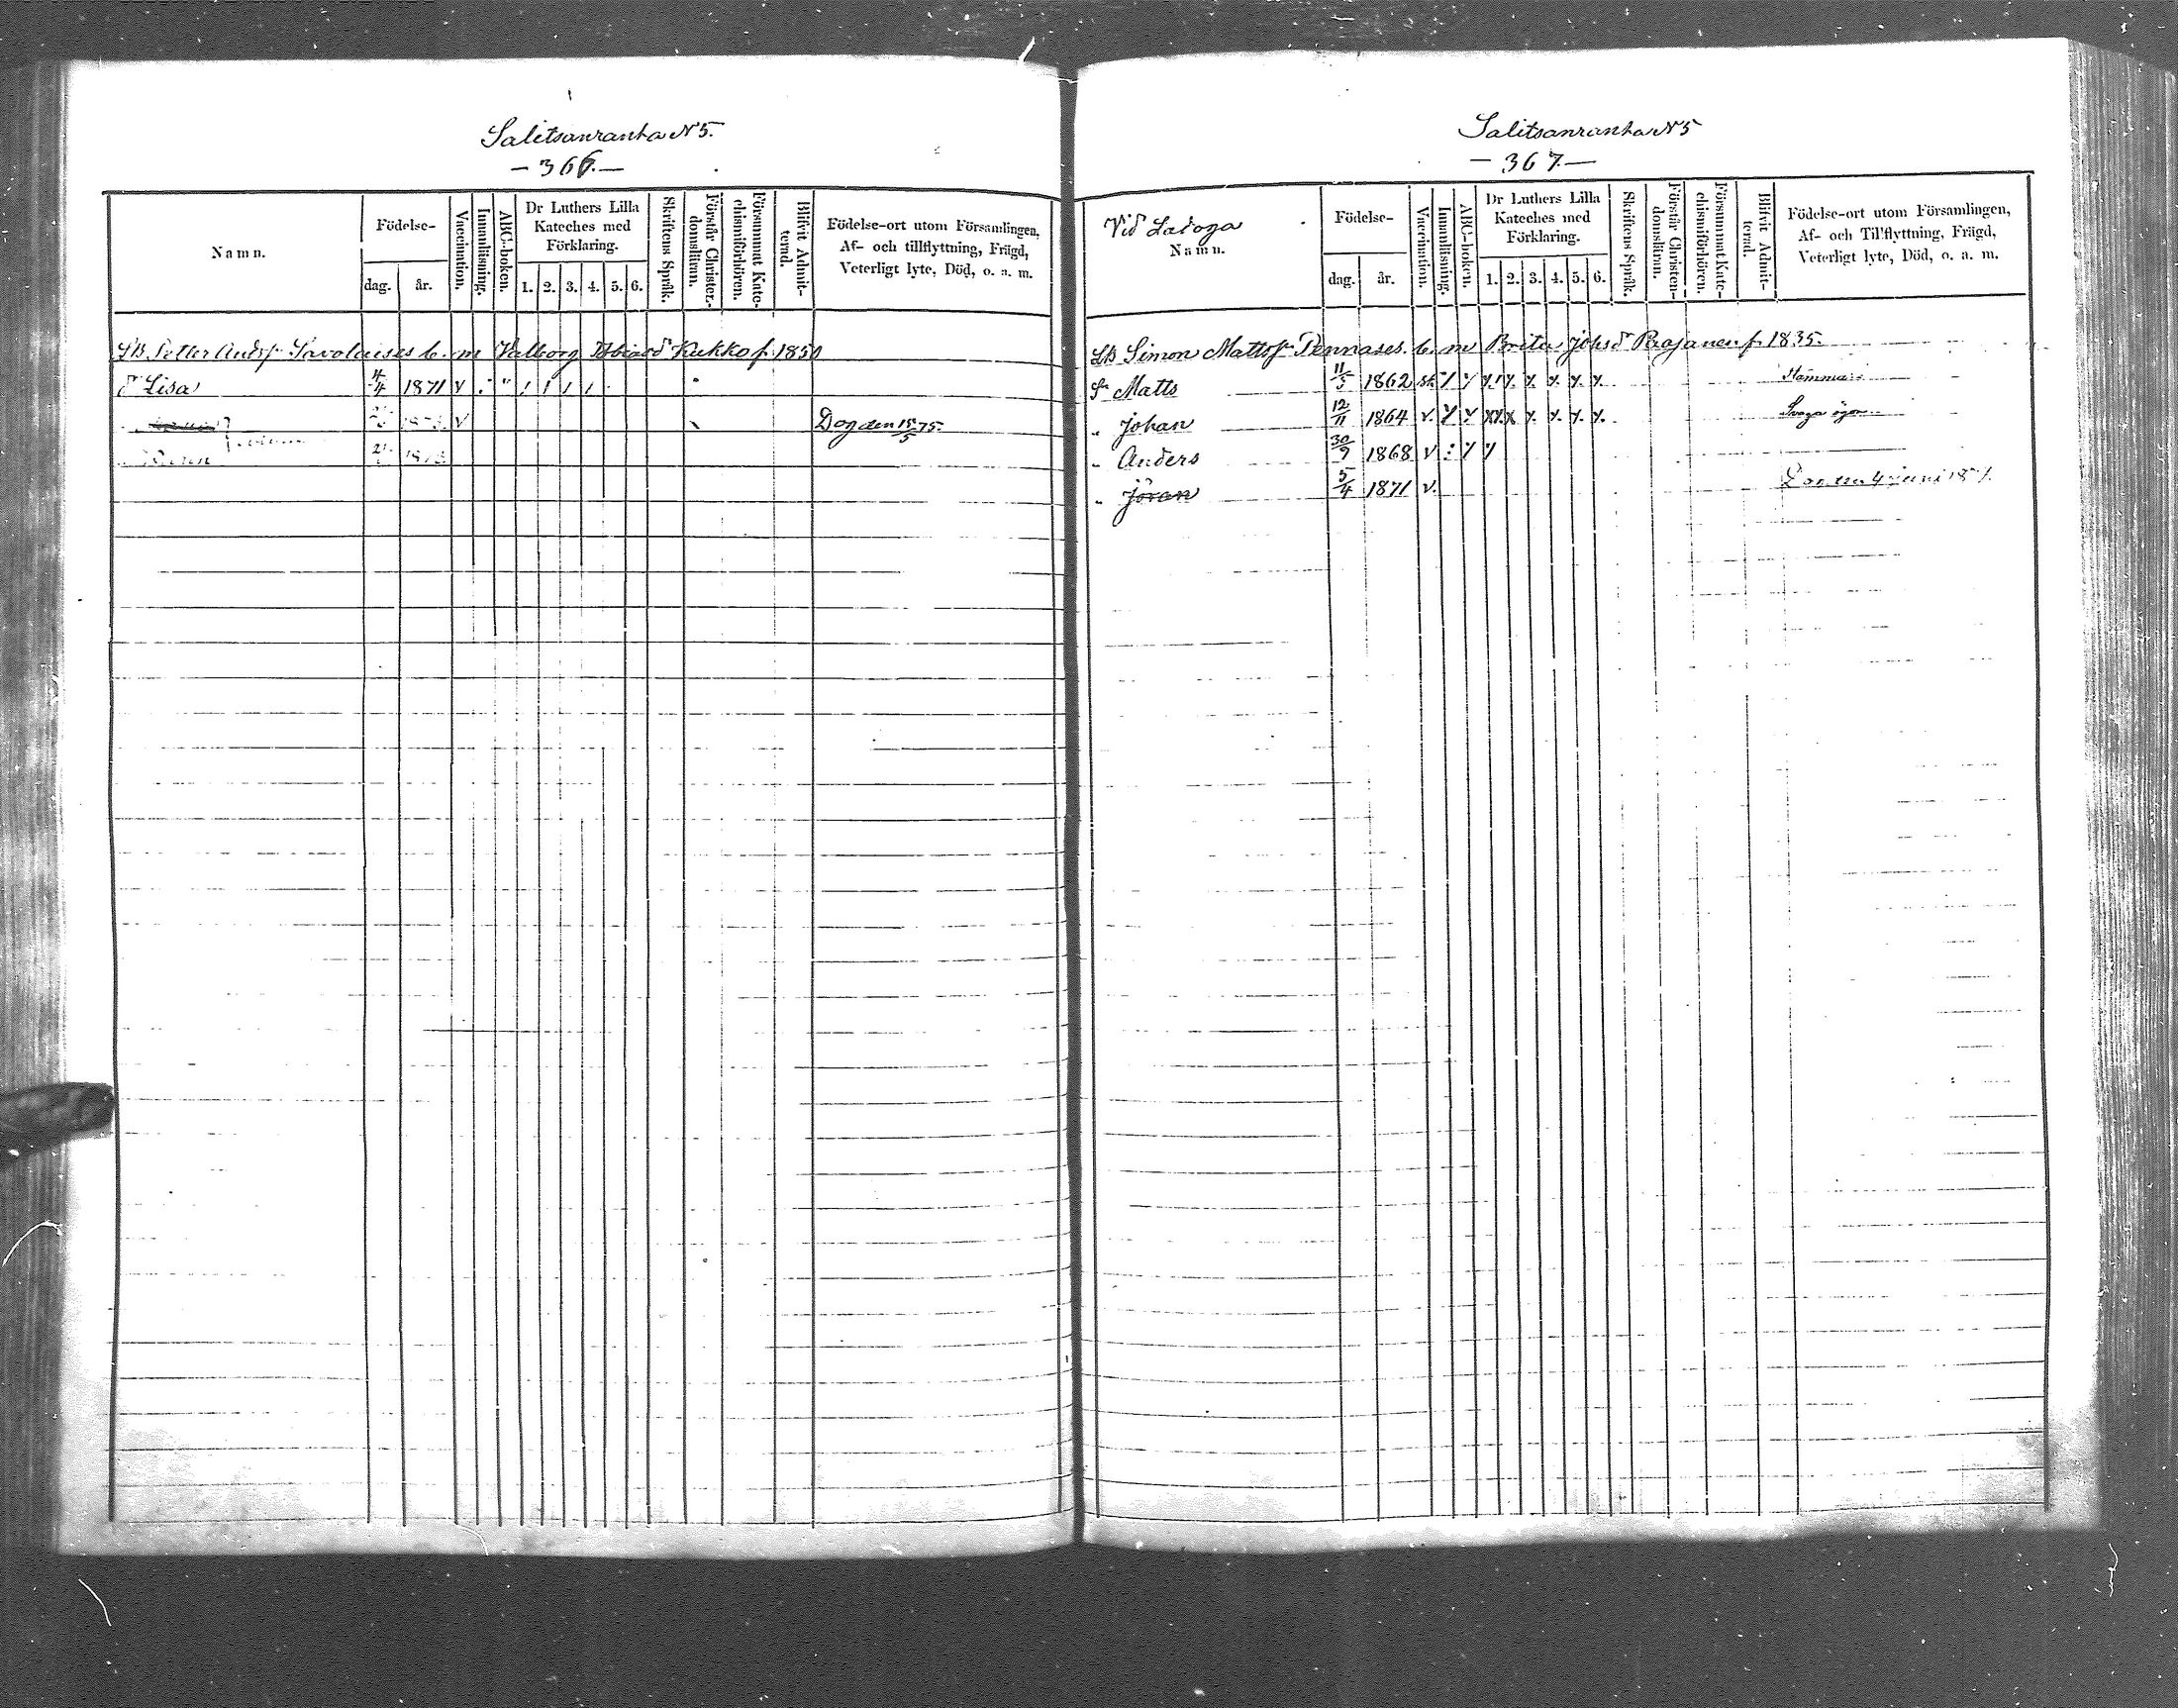 Salitsanranta N5.
— 366. —
Namn.
Födelse-
dag.
år.
Vaccination.
Innanläsning.
ABC-boken.
Dr Luthers Lilla Kateches med Förklaring.
1. 2. 3. 4. 5. 6.
Skriftens Språk.
Förstår Christen-domsläran.
Försummat Kate-chismiförhören.
Blifvit Admit-terad.
Födelse-ort utom Församlingen,
Af- och tillflyttning, Frägd,
Veterligt lyte, Död, o. a. m.
LB Petter Andsf Savolaises b. m Valborg Tobiasd Kukko f. 1850
d Lisa 4/4 1871 v
Dog den 15/5 75.
Salitsanranta N5
— 367 —
Vid Ladoga
Namn.
Födelse-
dag.
år.
Vaccination.
Innanläsning.
ABC-boken.
Dr Luthers Lilla Kateches med Förklaring.
1. 2. 3. 4. 5. 6.
Skriftens Språk.
Förstår Christen-domsläran.
Försummat Kate-chismiförhören.
Blifvit Admit-terad.
Födelse-ort utom Församlingen,
Af- och Tillflyttning, Frägd,
Veterligt lyte, Död, o. a. m.
LB Simon Mattsf Pennases b. m Brita Johsd Rajanen f. 1835.
Sr Matts 11/5 1862 Stammar
" Johan 12/11 1864 v. Svaga ögon
" Anders 30/9 1868 v
" Jöran 5/4 1871 v. 4 juni